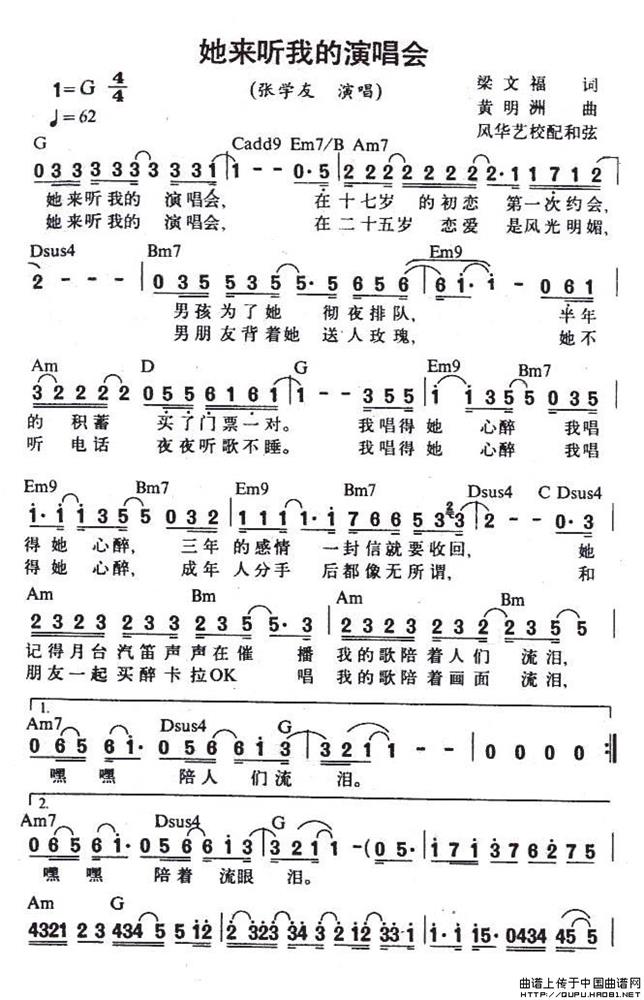 她来听我的演唱会
1=G 4/4
(张学友 演唱)
梁文福 词
♩=62
黄明洲 曲
风华艺校配和弦
G Cadd9 Em7/B Am7
0 3 3 3 3 3 3 3 3 3 1 | 1 - - 0· 5 | 2 2 2 2 2 2 2 2· 1 1 7 1 2
她来听我的 演唱会, 在十七岁 的初恋 第一次约会,
她来听我的 演唱会, 在二十五岁 恋爱 是风光明媚,
Dsus4 Bm7 Em9
2 - - - | 0 3 5 5 3 5 5· 5 6 5 6 | 6 1· 1 - 0 6 1
男孩为了她 彻夜排队, 半年
男朋友背着她 送人玫瑰, 她不
Am D G Em9 Bm7
3 2 2 2 2 0 5 5 6 1 6 1 | 1 - - 3 5 5 | 1 1 3 5 5 0 3 5
的 积蓄 买了门票一对。 我唱得她 心醉 我唱
听 电话 夜夜听歌不睡。 我唱得她 心醉 我唱
Em9 Bm7 Em9 Bm7 Dsus4 C Dsus4
1· 1 1 3 5 5 0 3 2 | 1 1 1 1· 1 7 6 6 5 3 3 | 2 - - 0· 3
得她 心醉, 三年 的感情 一封信就要收回, 她
得她 心醉, 成年 人分手 后都像无所谓, 和
Am Bm Am Bm
2 3 2 3 2 3 2 3 2 3 5 5· 3 | 2 3 2 3 2 3 2 2 3 5 5
记得月台 汽笛声声在催 播 我的歌陪着人们 流泪,
朋友一起 买醉卡拉OK 唱 我的歌陪着画面 流泪,
1.
Am7 Dsus4 G
0 6 5 6 1· 0 5 6 6 1 3 | 3 2 1 1 - - | 0 0 0 0 :||
嘿 嘿 陪人 们流 泪。
2.
Am7 Dsus4 G
0 6 5 6 1· 0 5 6 6 1 3 | 3 2 1 1 1 - (0 5· | 1 7 1 3 7 6 2 7 5
嘿 嘿 陪着 流眼 泪。
Am G
4321 2 3 434 5 5 12 | 2 323 34 3 2 12 33 1 | 1· 1 15· 0434 45 5
曲谱上传于中国曲谱网
HTTP://QUPU.HAO81.NET